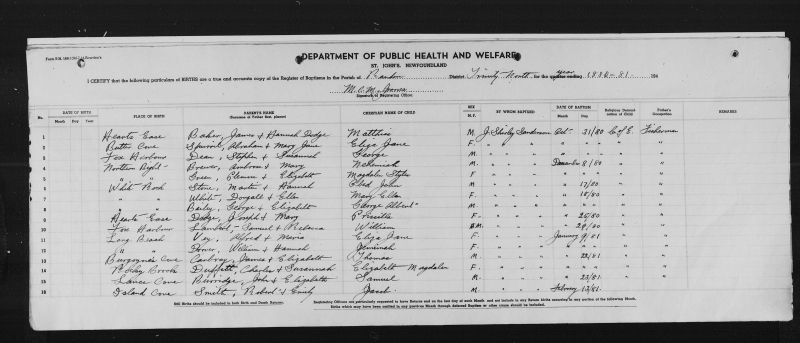 DEPARTMENT OF PUBLIC HEALTH AND WELFARE
ST. JOHN'S, NEWFOUNDLAND
I CERTIFY that the following particulars of BIRTHS are a true and accurate copy of the Register of Baptisms in the Parish of Random District Trinity North for the year ending 1880-81 194
Signature of Registering Officer.
No. DATE OF BIRTH Month Day Year PLACE OF BIRTH PARENTS NAME (Surname of Father first, please) CHRISTIAN NAME OF CHILD SEX M.F. BY WHOM BAPTISED DATE OF BAPTISM Month Day Religious Denomination of Child Father's Occupation REMARKS
1 Hearts Ease Baker, James & Hannah Dodge Matthias M. J. Shirley Sanderson Oct 31/80 C of E. Fisherman
2 Butter Cove Spurrel, Abraham & Mary Jane Eliza Jane F. " " " " " " "
3 Fox Harbour Dean, Stephen & Susannah George M. " " " " " " "
4 Northern Bight Brewer, Ambrose & Mary Nehemiah M. " " " December 8/80 " "
5 " " Green, Eleanor & Elizabeth Magdalen F " " " " " "
6 White Rock Stone, Martin & Hannah John M. " " " " 17/80 " "
7 " " White, Dougall & Ellen Mary Ellen F. " " " " 18/80 " "
8 " " Bailey, George & Elizabeth George Albert M. " " " " " " "
9 Hearts Ease Dodge, Joseph & Mary Priscilla F. " " " " 25/80 " "
10 Fox Harbour Lambert, Samuel & Rebecca William M. " " " " 29/80 " "
11 Long Beach Vey, Alfred & Maria Eliza Jane F. " " " January 9/81 " "
12 " " Gower, William & Hannah Jemimah F. " " " " " " "
13 Burgoyne's Cove James & Elizabeth Thomas M. " " " " 22/81 " "
14 Brook Duffett, Charles & Susannah Elizabeth Magdalen F. " " " " " " "
15 Lance Cove Burridge, John & Elizabeth Samuel M. " " " " 23/81 " "
16 Island Cove Smith, Robert & Emily Jacob M. " " " February 13/81 " "
Still Births should be included in both Birth and Death Returns.
Registering Officers are particularly requested to have Returns end on the last day of each Month and not include in any Return Births occurring in any portion of the following Month.
Births which may have been omitted in any previous Month through deferred Baptism or other cause should be included.